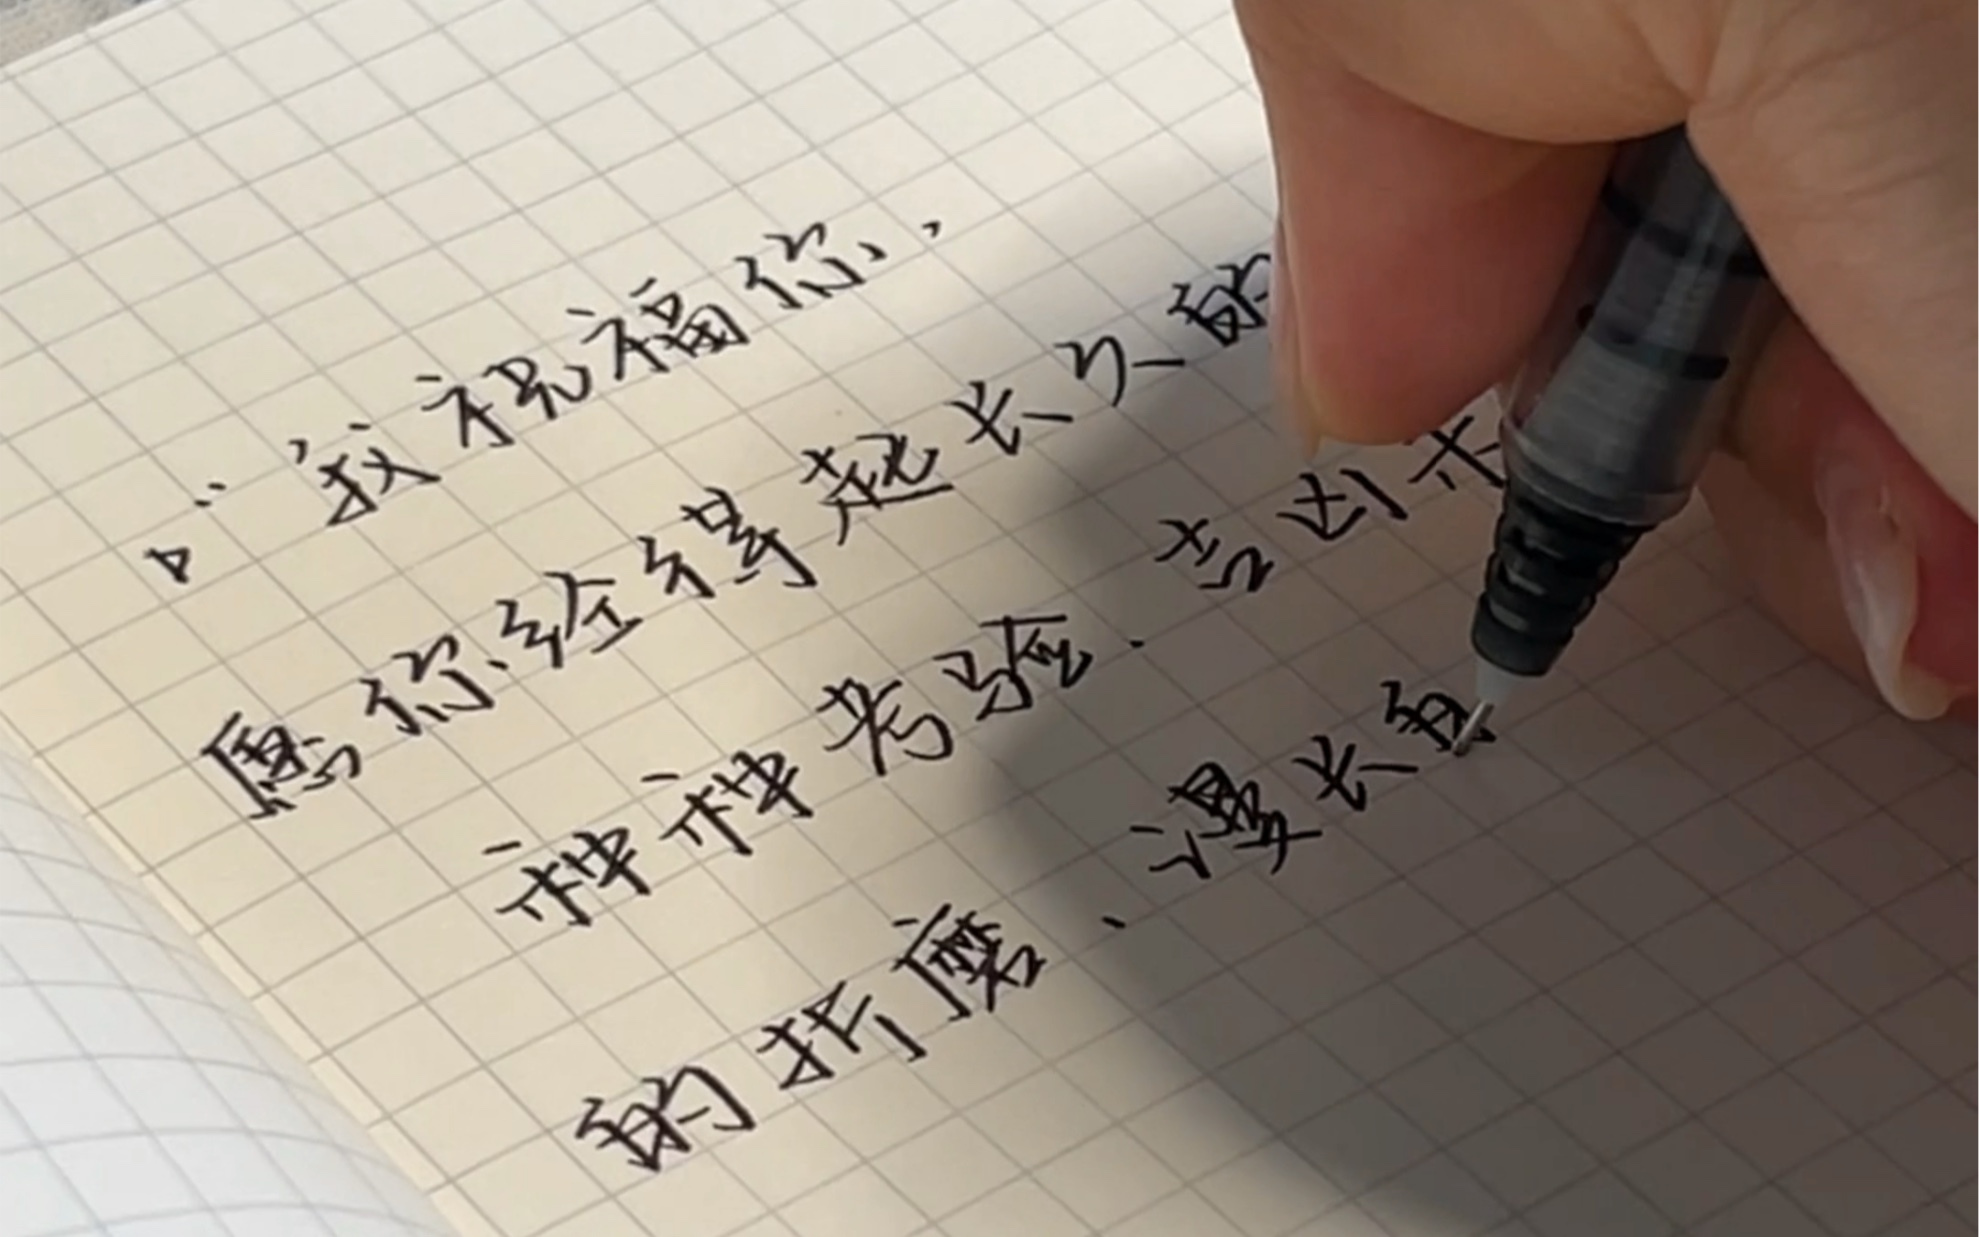 “我祝福你，
愿你经得起长久的
种种考验、吉凶未
的折磨、漫长的